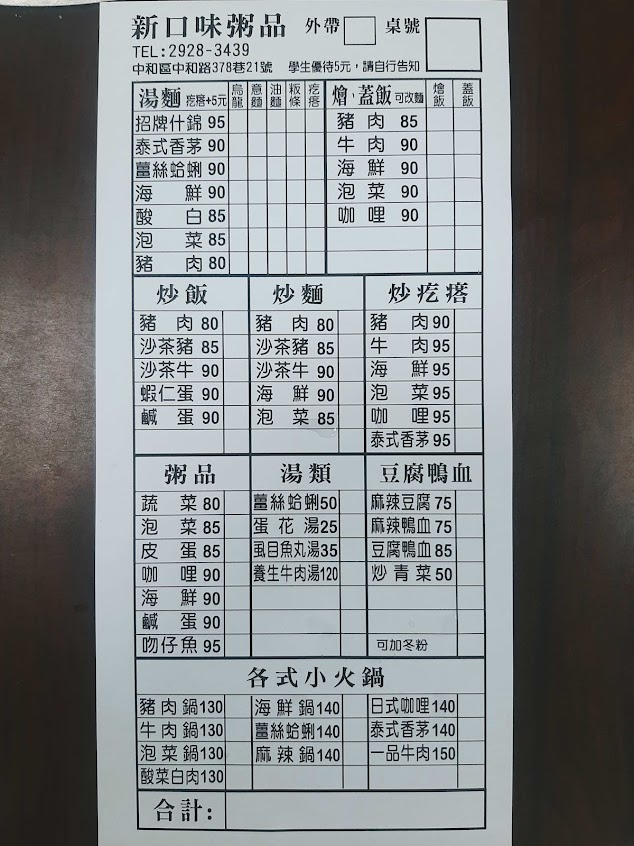 新口味粥品 外帶 桌號
TEL:2928-3439
中和區中和路378巷21號 學生優待5元，請自行告知
湯麵 疙瘩+5元 烏龍 意麵 油麵 粄條 疙瘩
招牌什錦 95
泰式香茅 90
薑絲蛤蜊 90
海鮮 90
酸白 85
泡菜 85
豬肉 80
燴、蓋飯 可改麵 燴飯 蓋飯
豬肉 85
牛肉 90
海鮮 90
泡菜 90
咖哩 90
炒飯
豬肉 80
沙茶豬 85
沙茶牛 90
蝦仁蛋 90
鹹蛋 90
炒麵
豬肉 80
沙茶豬 85
沙茶牛 90
海鮮 90
泡菜 85
炒疙瘩
豬肉 90
牛肉 95
海鮮 95
泡菜 95
咖哩 95
泰式香茅 95
粥品
蔬菜 80
泡菜 85
皮蛋 85
咖哩 90
海鮮 90
鹹蛋 90
吻仔魚 95
湯類
薑絲蛤蜊 50
蛋花湯 25
虱目魚丸湯 35
養生牛肉湯 120
豆腐鴨血
麻辣豆腐 75
麻辣鴨血 75
豆腐鴨血 85
炒青菜 50
可加冬粉
各式小火鍋
豬肉鍋 130
牛肉鍋 130
泡菜鍋 130
酸菜白肉 130
海鮮鍋 140
薑絲蛤蜊 140
麻辣鍋 140
日式咖哩 140
泰式香茅 140
一品牛肉 150
合計: